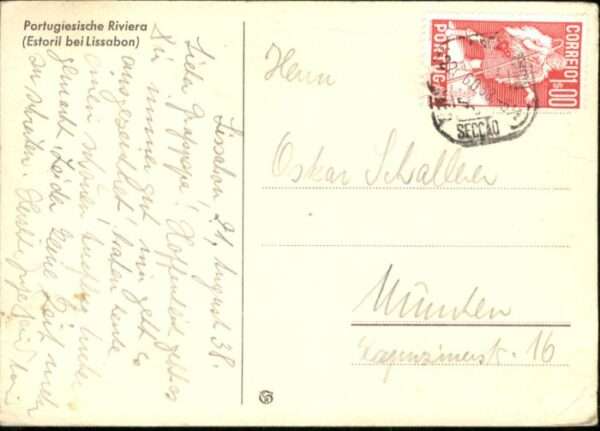 Portugiesische Riviera
(Estoril bei Lissabon)
Lissabon 21. August 38.
Lieber Grosspapa! Hoffentlich geht es
Dir immer gut mir geht es
ausgezeichnet! haben heute
einen schönen Ausflug hierher
gemacht. Leider keine Zeit mehr
zu schreiben. Herzliche Grüße
CORREIO 1$00
PORTUGAL
SECÇÃO
Herrn
Oskar Schaller
München
Kapuzinerstr. 16